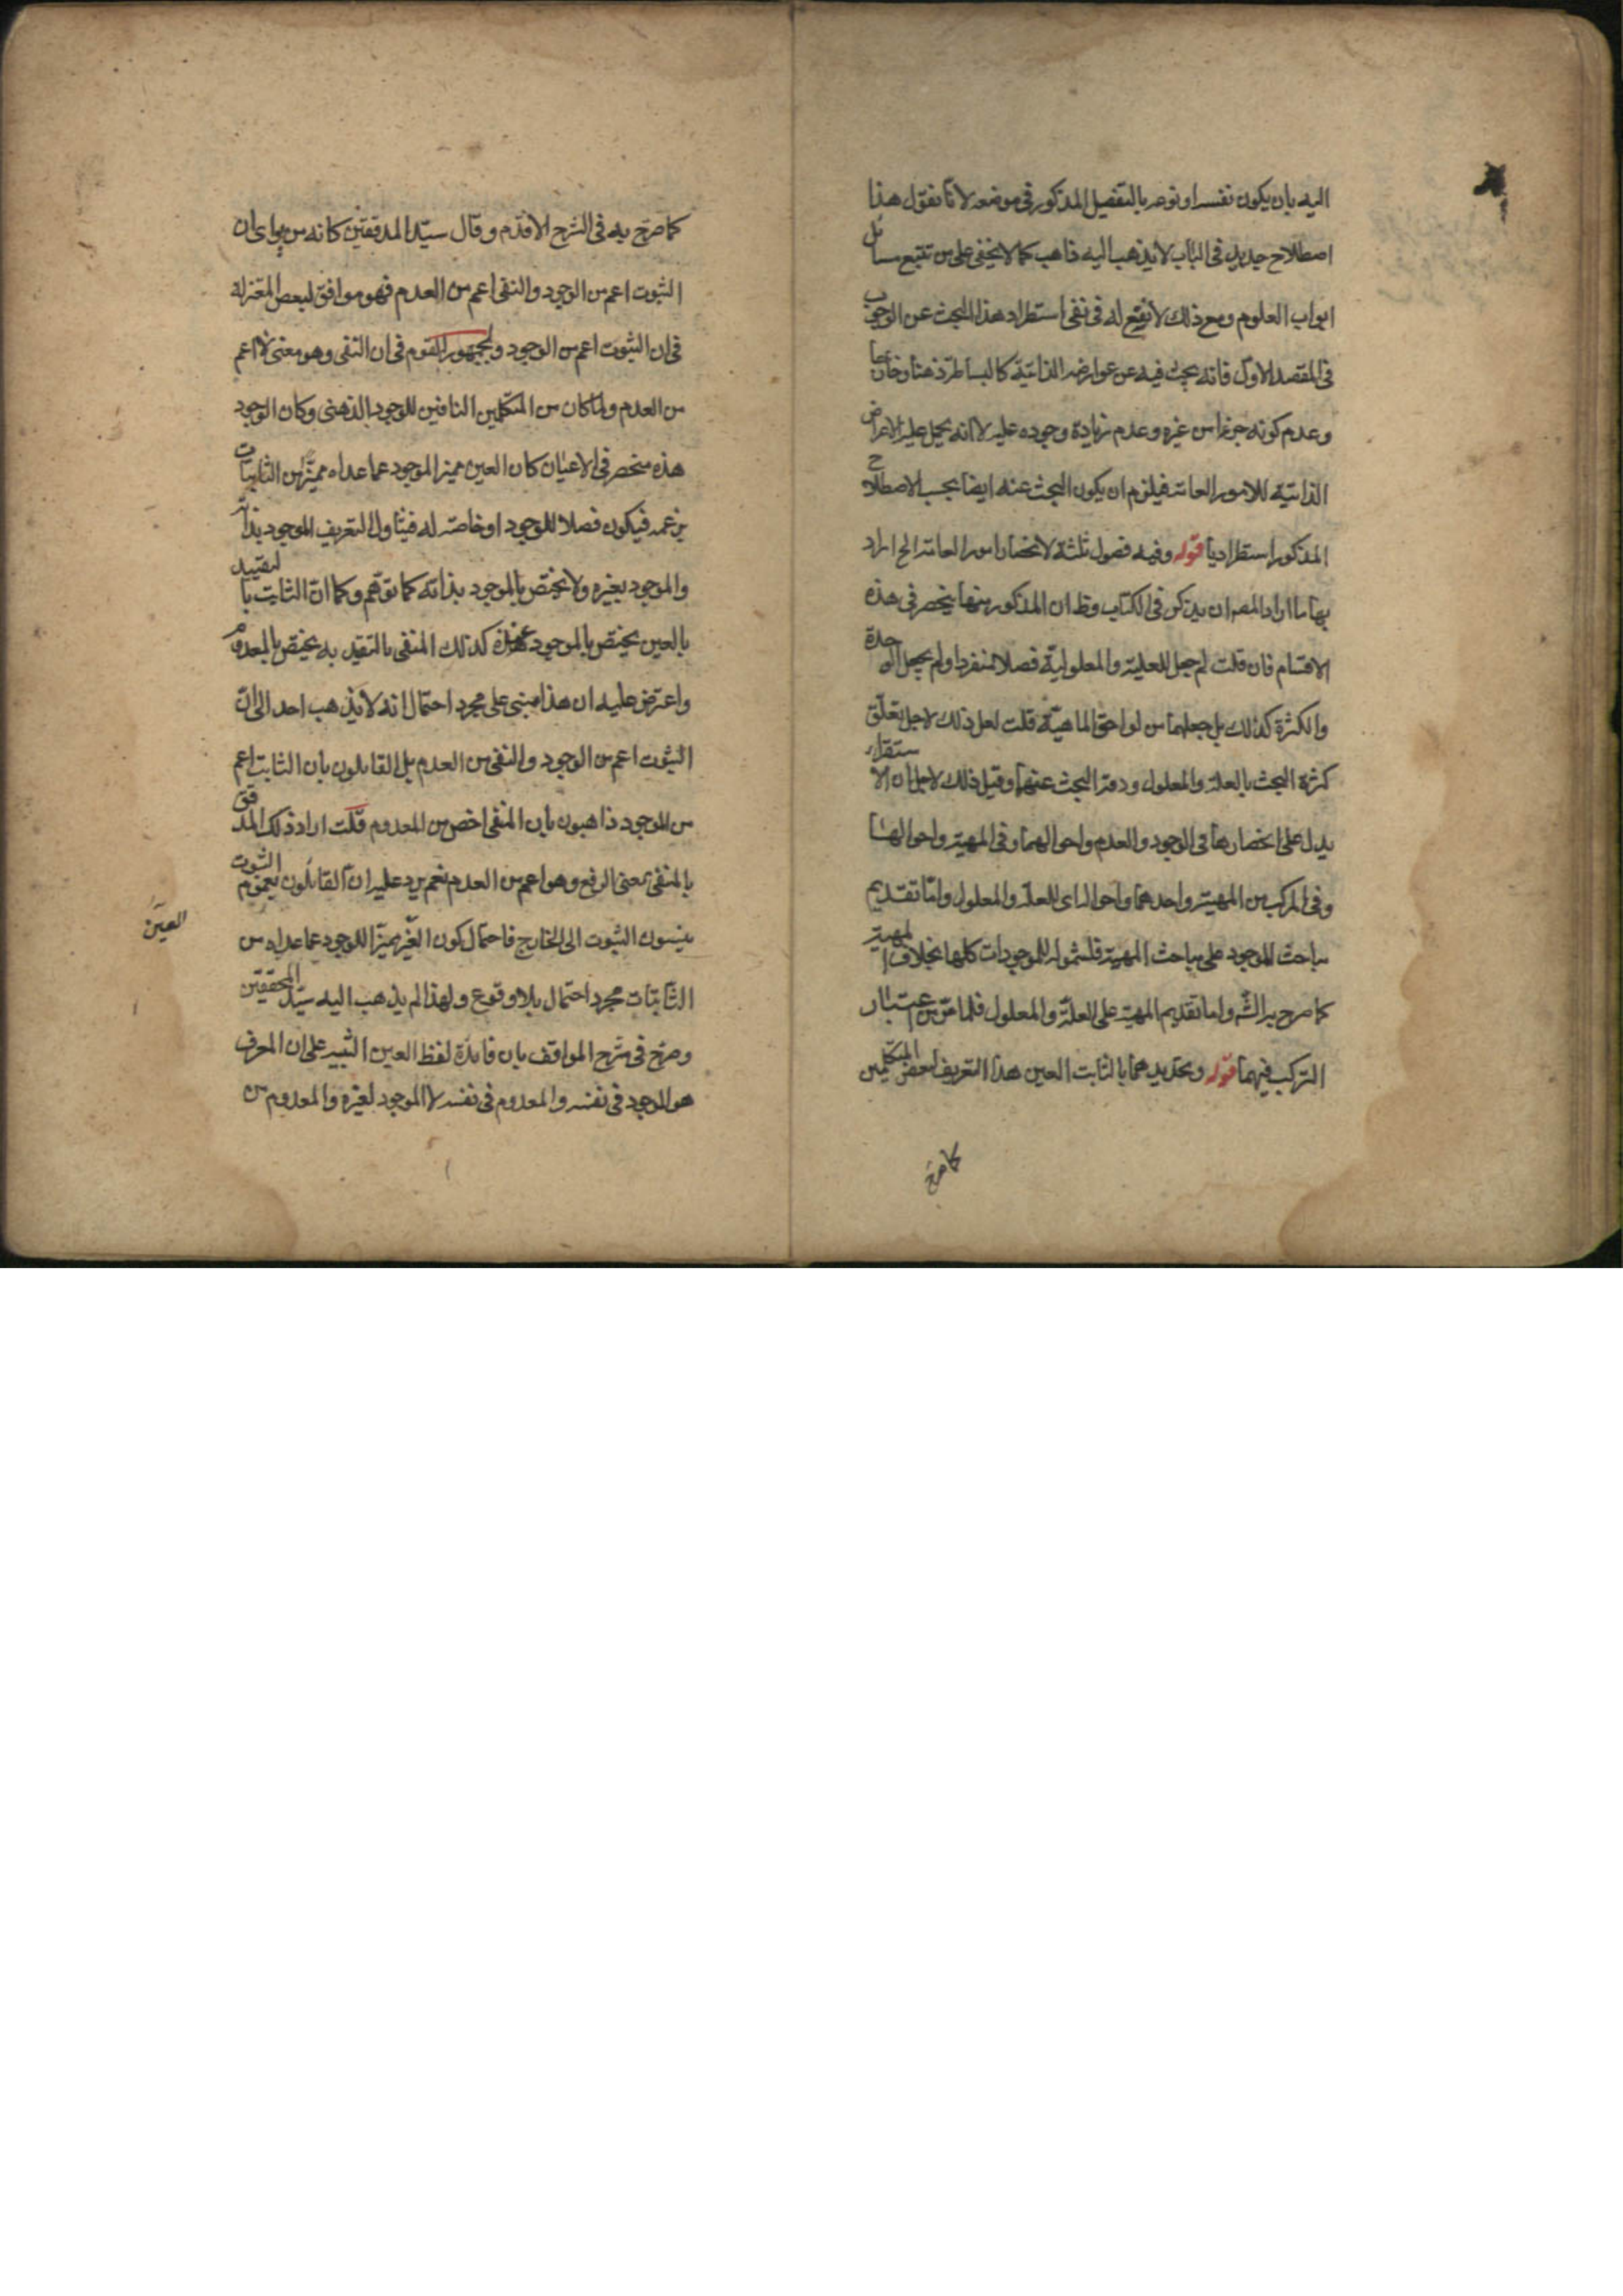 اليه بان يكون نفسه او نوعه بالتفصيل المذكور فى موضعه لانا نقول هذا
اصطلاح جديد فى الباب لا يذهب اليه ذاهب كما لا يخفى على من تتبع مسائل
ابواب العلوم ومع ذلك لا ينفع له فى نفى استطراد هذا البحث عن الوجوب
فى المقصد الاول فانه يبحث فيه عن عوارضه الذاتية كالبساطة ذهنا وخارجا
وعدم كونه جزءا من غيره وعدم زيادة وجوده عليه لا انه يحمل عليه الاعراض
الذاتية للامور العامة فيلزم ان يكون البحث عنه ايضا بحسب الاصطلاح
المذكور استطراديا قوله وفيه فصول ثلثة لانحصار امور العامة الخ اراد
بها ما اراد المصه ان يذكر فى الكتاب وظ ان المذكور منها ينحصر فى هذه
الاقسام فان قلت لم جعل للعلية والمعلولية فصلا منفردا ولم يجعل الوحدة
والكثرة كذلك بل جعلهما من لواحق الماهية قلت لعل ذلك لاجل تعلق
كثرة البحث بالعلة والمعلول ودقة البحث عنهما وقيل ذلك لاجل ان الاستقراء
يدل على انحصارها فى الوجود والعدم واحوالهما وفى المهية واحوالها
وفى المركب من المهية واحدهما واحواله اى العلة والمعلول واما تقديم
مباحث الموجود على مباحث المهية فلشموله للموجودات كلها بخلاف المهية
كما صرح به الشه واما تقديم المهية على العلة والمعلول فلما مر من اعتبار
التركب فيهما قوله وتحديدهما بالثابت العين هذا التعريف لبعض المتكلمين
كما صرح
كما صرح به فى الشرح الاقدم وقال سيد المدققين كانه من يرى ان
الثبوت اعم من الوجود والنفى اعم من العدم فهو موافق لبعض المعتزلة
فى ان الثبوت اعم من الوجود ولجمهور القوم فى ان النفى وهو معنى لا اعم
من العدم ولما كان من المتكلمين النافين للوجود الذهنى وكان الوجود
هذه منحصر فى الاعيان كان العين مميز الموجود عما عداه مميزا من الثابتات
بزعمه فيكون فصلا للوجود او خاصة له فيتناول التعريف الموجود بذاته
والموجود بغيره ولا يختص بالموجود بذاته كما توهم وكما ان الثابت بالتقييد
بالعين يختص بالموجود عنده كذلك المنفى بالتقيد به يختص بالمعدوم
واعترض عليه ان هذا مبنى على مجرد احتمال انه لا يذهب احد الى ان
الثبوت اعم من الوجود والنفى من العدم بل القايلون بان الثابت اعم
من الموجود ذاهبون بان المنفى اخص من المعدوم قلت اراد ذلك المدقق
بالمنفى بمعنى الرفع وهو اعم من العدم نعم يرد عليه ان القائلون بعموم الثبوت
ينسبون الثبوت الى الخارج فاحتمال كون العين مميزا للوجود عما عداه من
العين
الثابتات مجرد احتمال بلا وقوع ولهذا لم يذهب اليه سيد المحققين
وصرح فى شرح المواقف بان فايدة لفظ العين التنبيه على ان المعرف
هو الموجود فى نفسه والمعدوم فى نفسه لا الموجود لغيره والمعدوم من